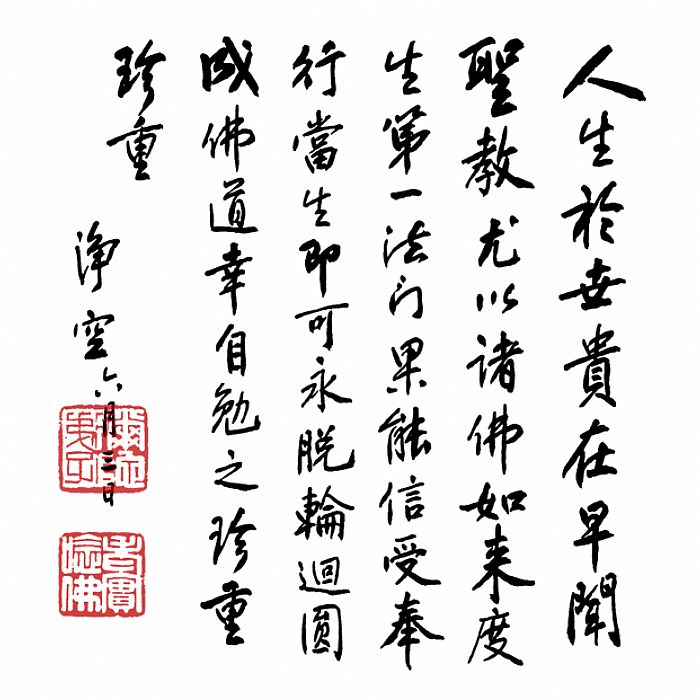 人生於世貴在早聞
聖教尤以諸佛如来度
生第一法门果能信受奉
行當生即可永脱輪迴圆
成佛道幸自勉之珍重
珍重
淨空六月三日
老實
念佛